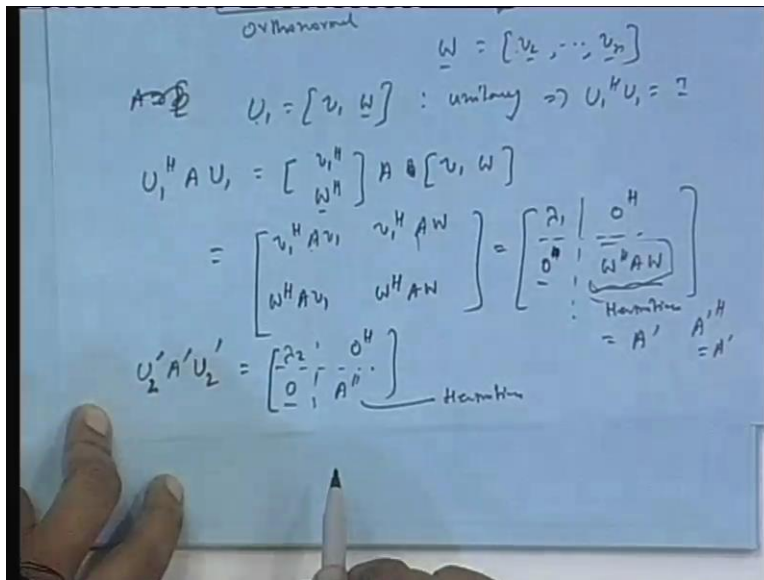 Orthonormal
W = [v₂, ⋯, vₙ]
U₁ = [v₁ W] : unitary ⇒ U₁ᴴU₁ = I
U₁ᴴ A U₁ = [v₁ᴴ Wᴴ] A [v₁ W]
= [v₁ᴴAv₁ v₁ᴴAW WᴴAv₁ WᴴAW] = [λ₁ 0ᴴ 0 WᴴAW]
Hermitian
= A' A'ᴴ = A'
U₂' A' U₂' = [λ₂ 0ᴴ 0 A'']
Hermitian